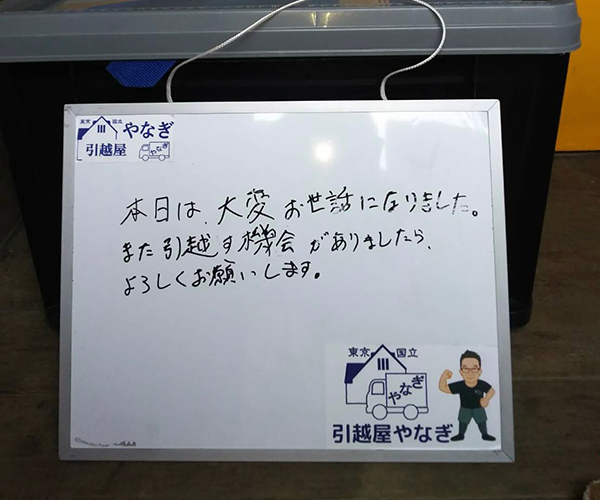 東京 国立
やなぎ
引越屋
やなぎ
本日は、大変お世話になりました。
また引越す機会がありましたら、
よろしくお願いします。
東京 国立
やなぎ
引越屋やなぎ